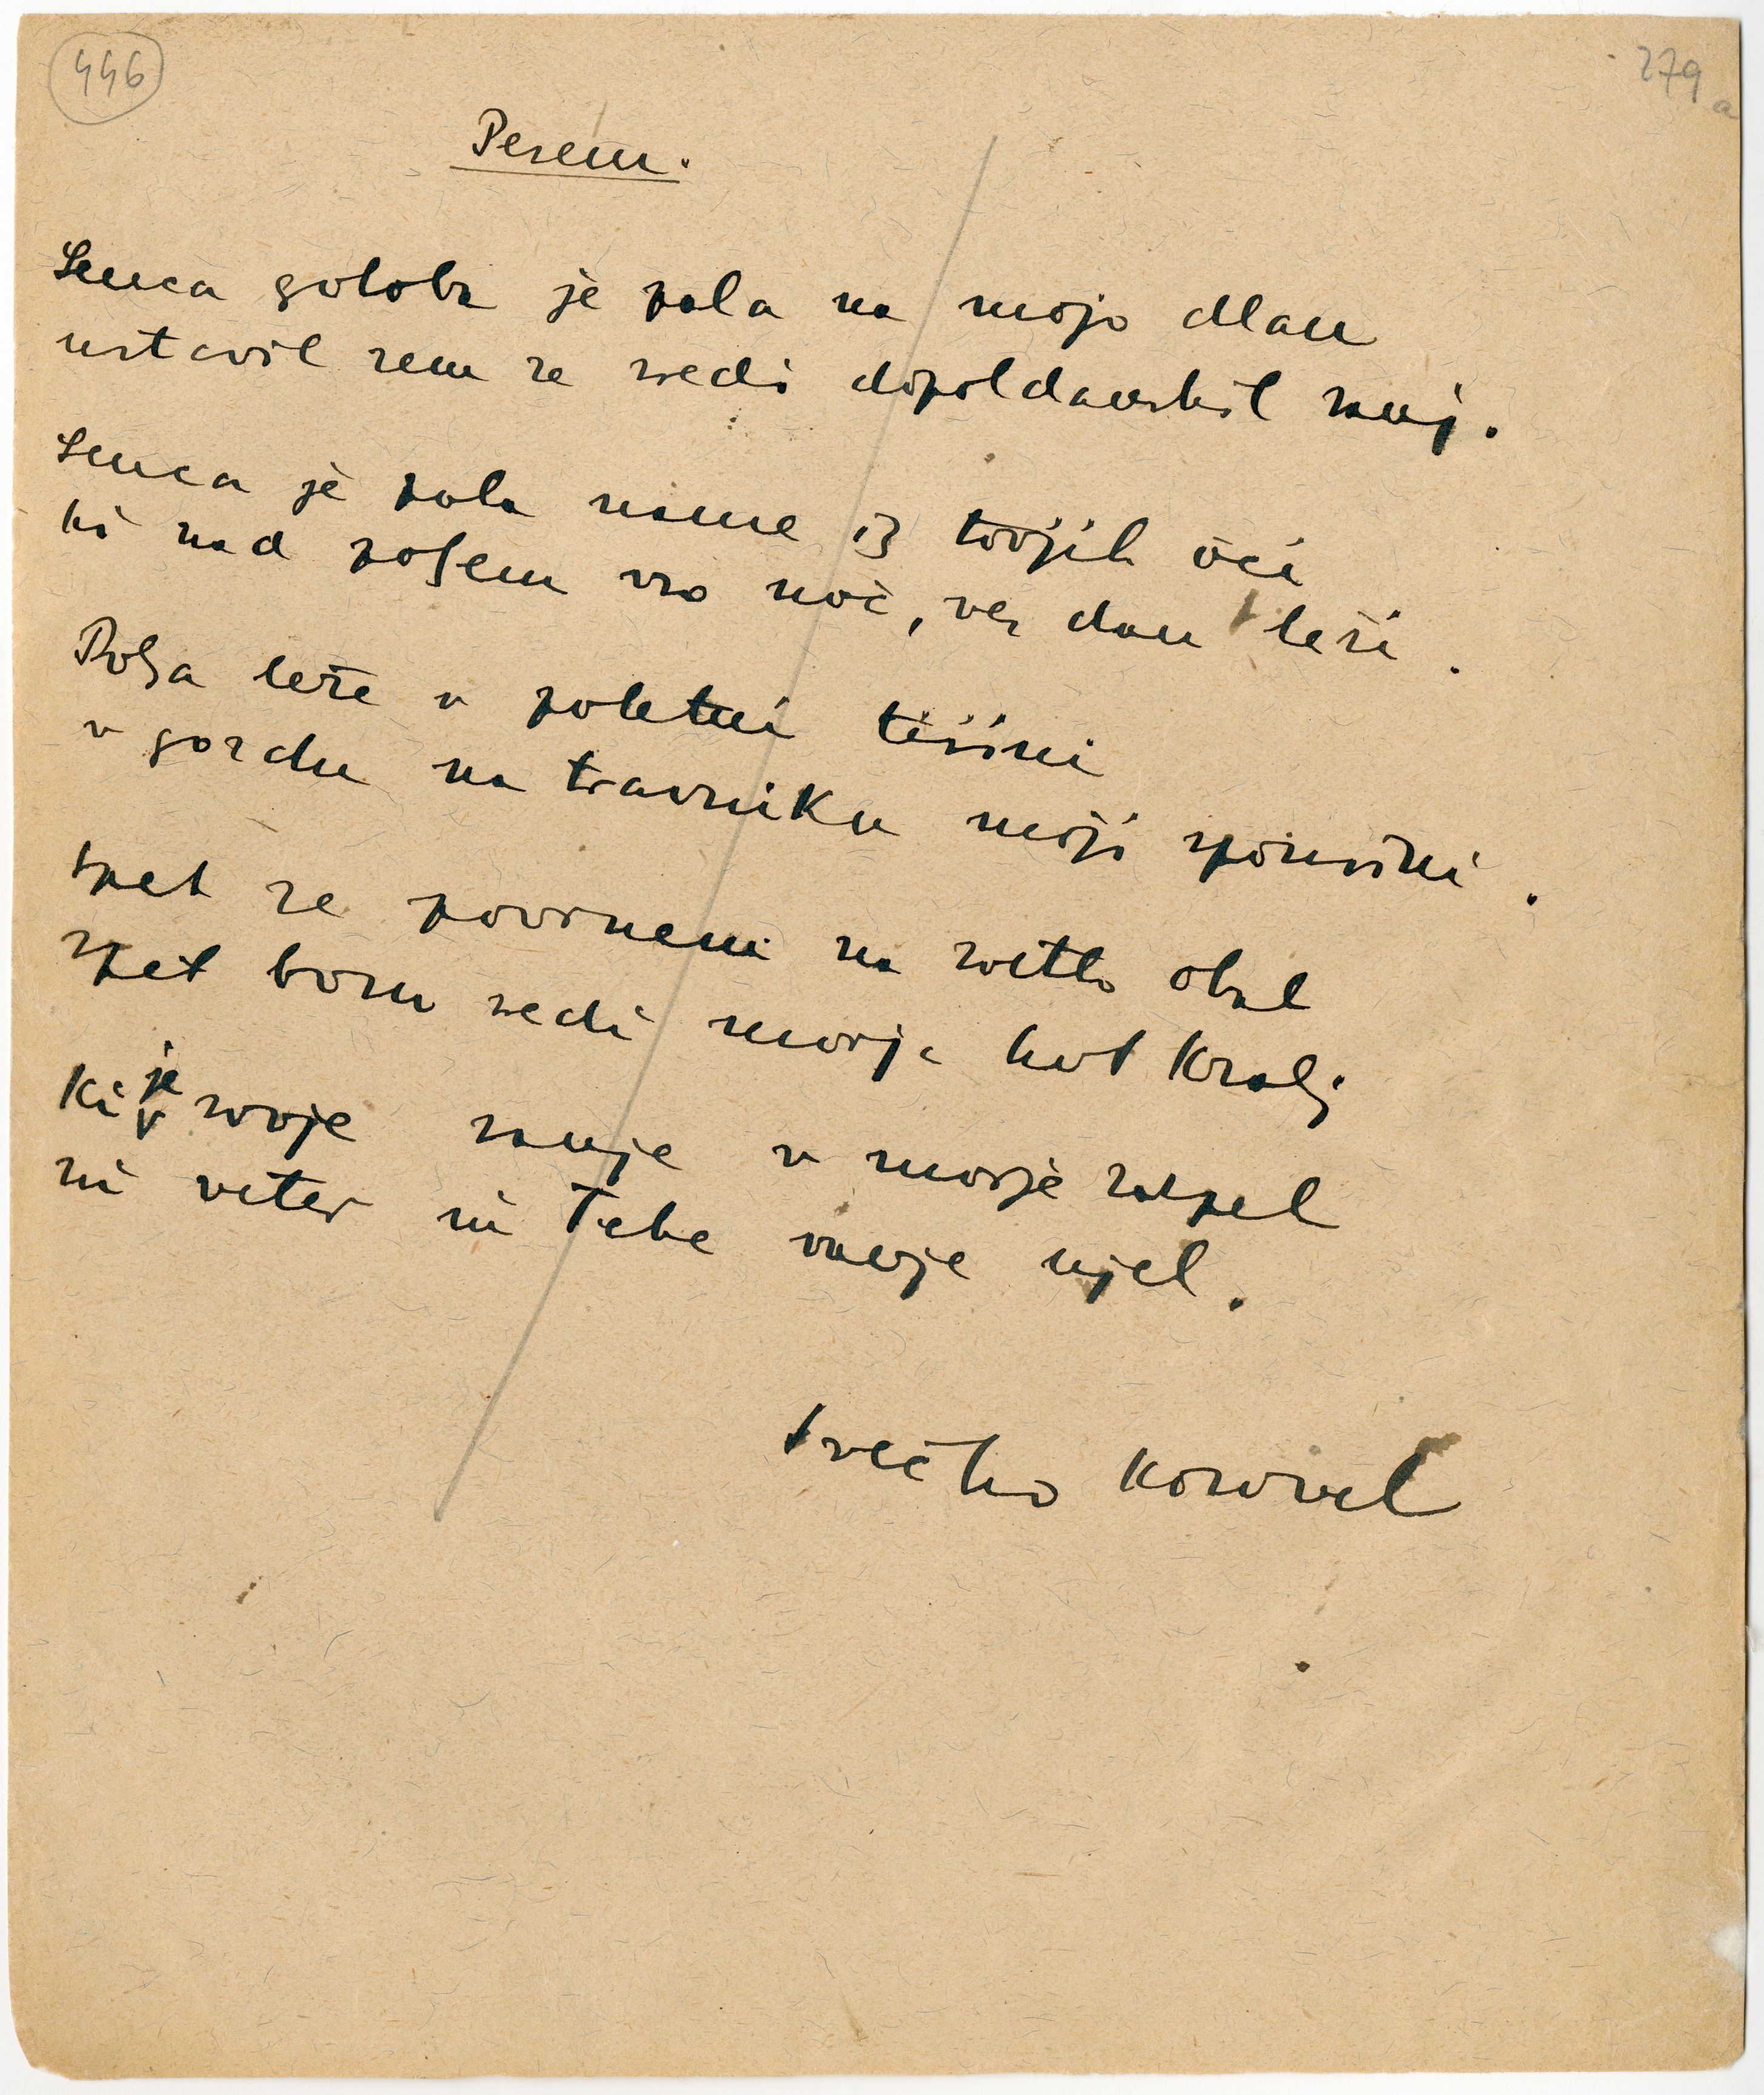 446
279a
Pesem.
Senca goloba je pala na mojo dlan
ustavil sem se sredi dopoldanskih sanj.
Senca je pala name iz tvojih oči
ki nad poljem vso noč, ves dan leži.
Polja leže v poletni tišini
v gozdu na travniku moji spomini.
Spet se povrnem na svetlo obal
spet bom sredi morja kot kralj
ki je svoje sanje v morje razpel
ni veter ni Tebe vanje ujel.
Srečko Kosovel